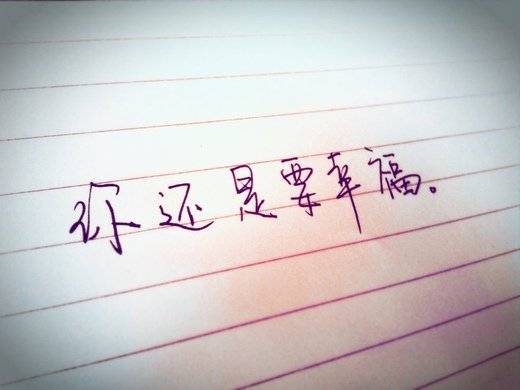 你还是要幸福。